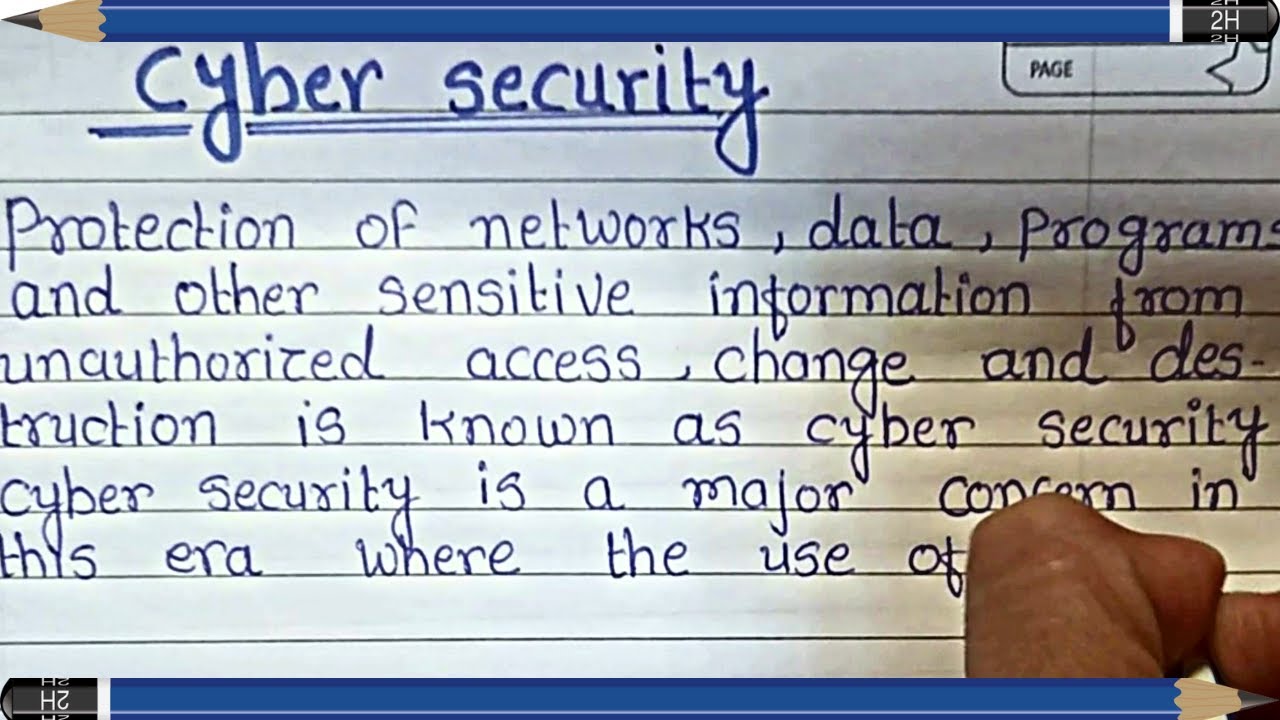 2H
2H
2H
PAGE
Cyber security
Protection of networks, data, programs
and other sensitive information from
unauthorized access, change and des-
truction is known as cyber security
cyber security is a major concern in
this era where the use of
2H
2H
2H